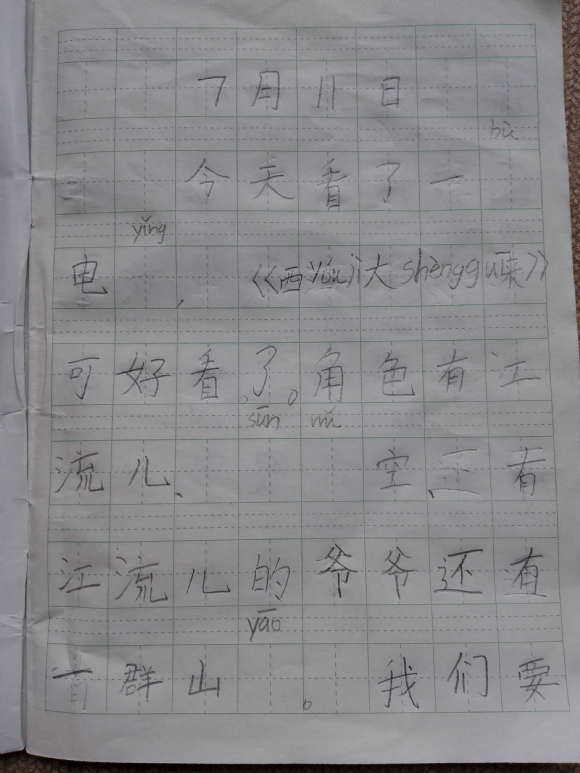 7月11日
今天看了一
yǐng
电,《西yóují大shèngguī来》
可好看了。角色有江
sūn
流儿、空、还有
江流儿的爷爷还有
yāo
一群山。我们要